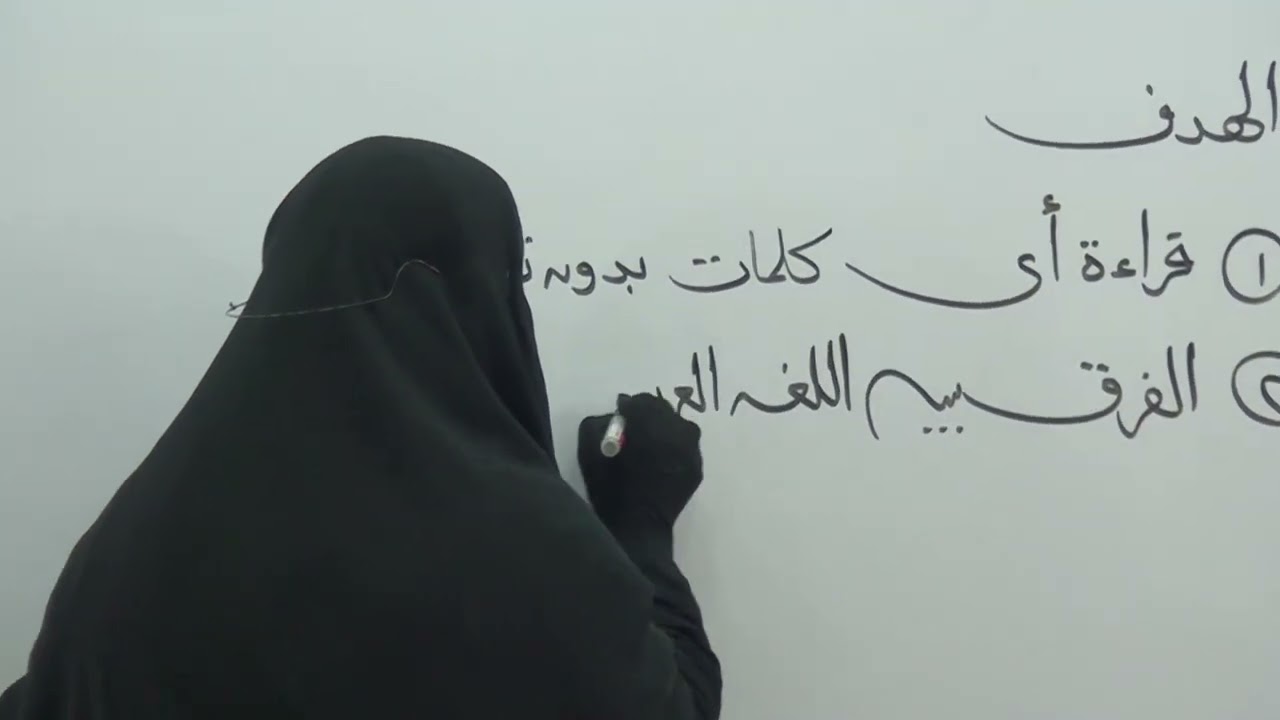 الهدف
١ قراءة أى كلمات بدون
٢ الفرق بين اللغه